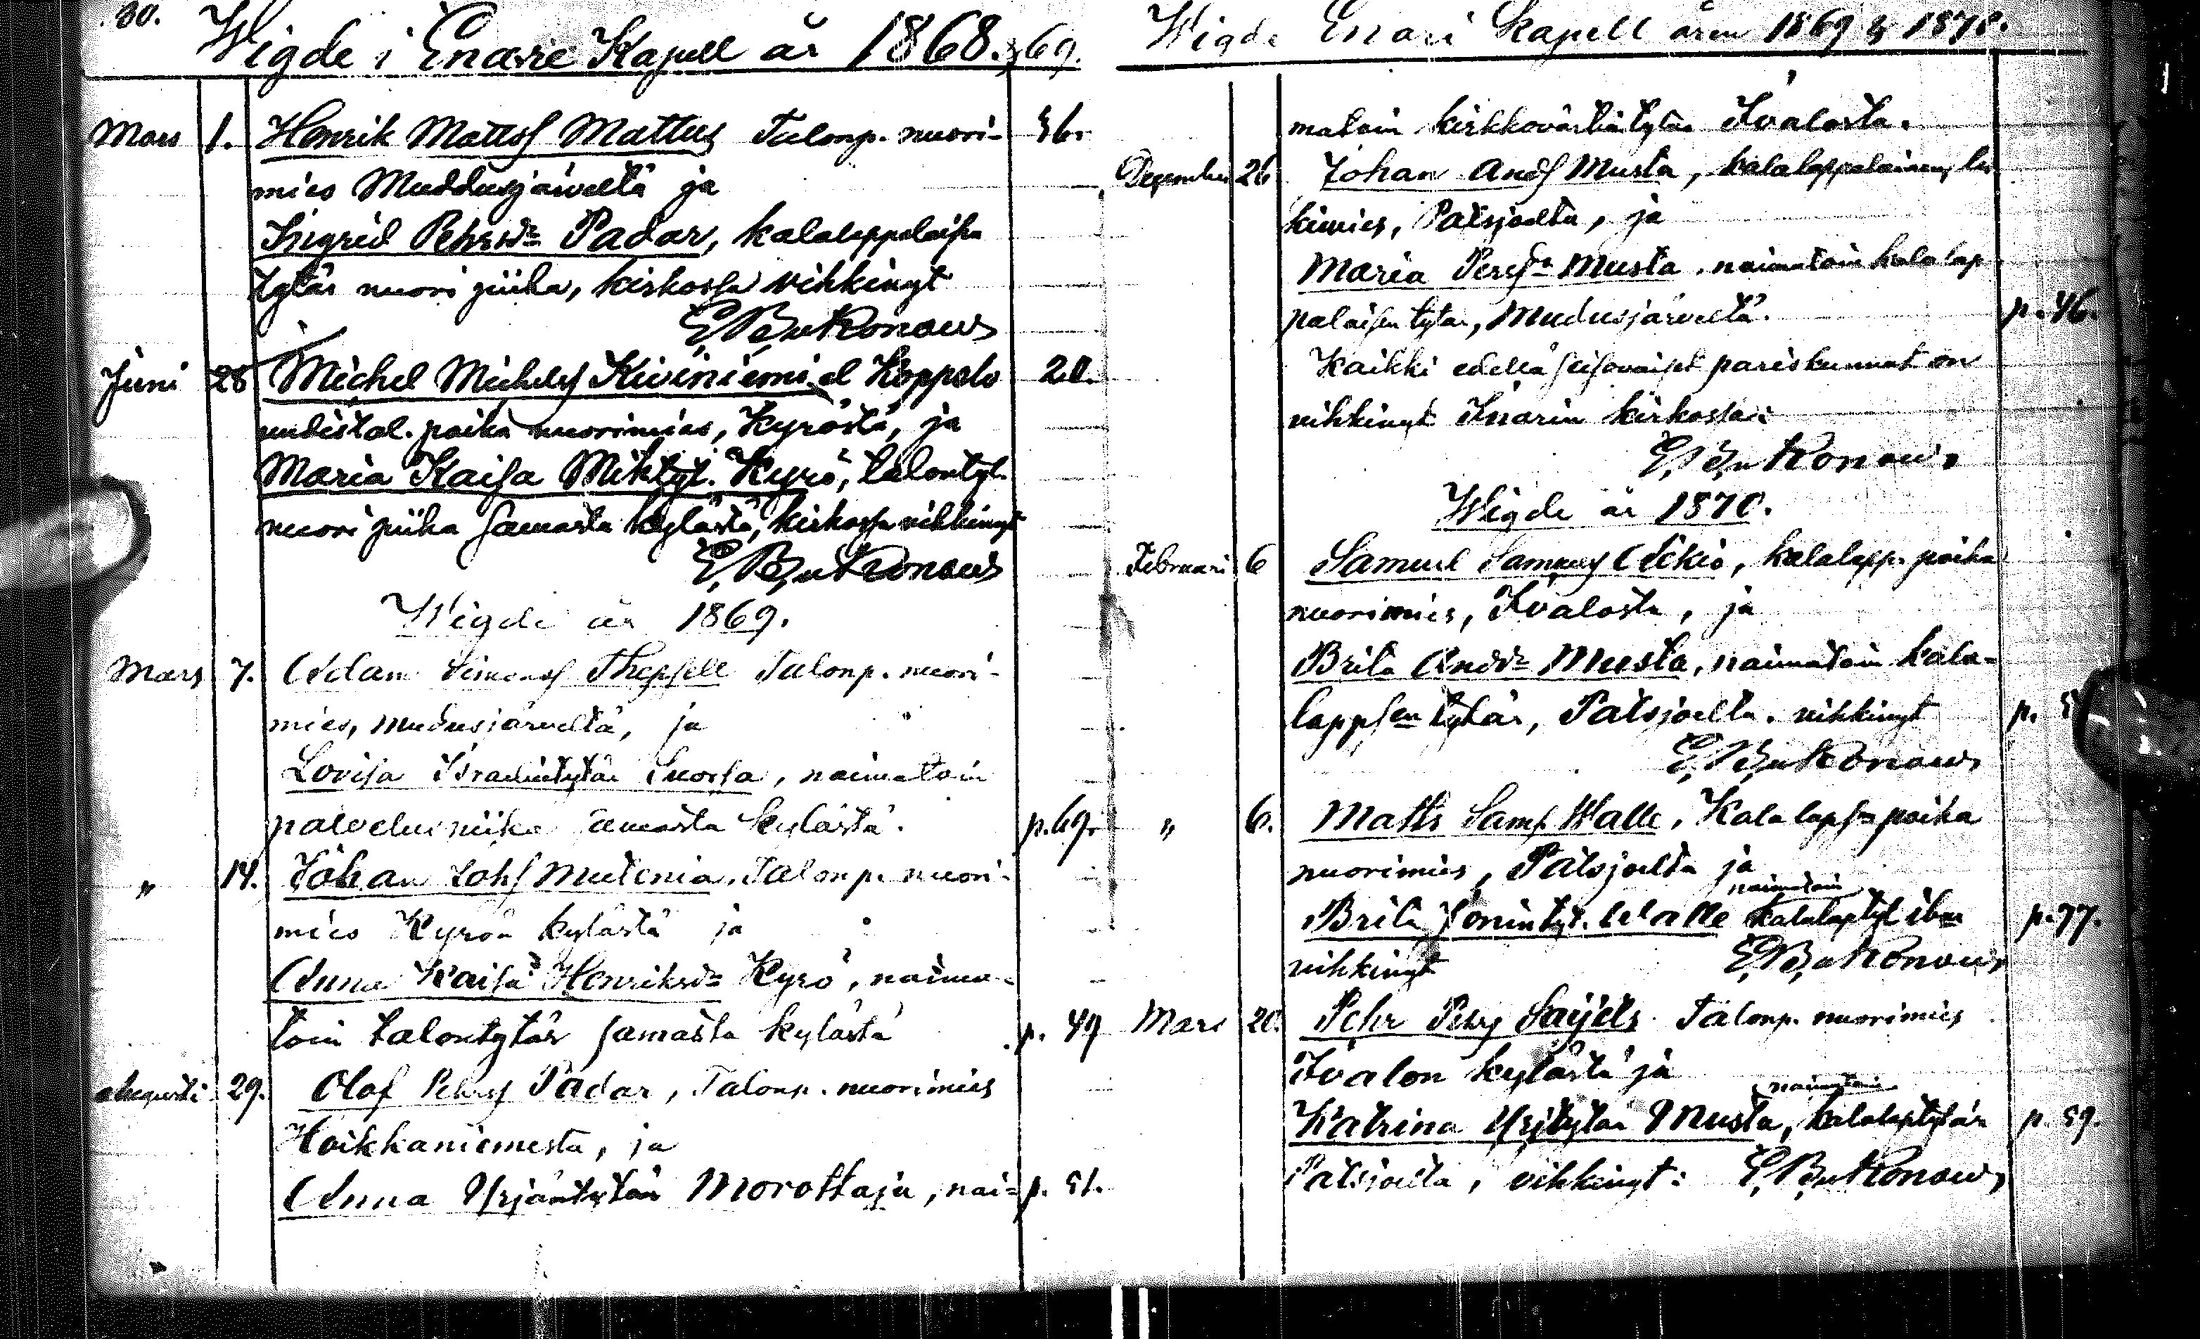 80.
Wigde i Enare Kapell år 1868. & 69.
Mars 1. Henrik Mattsf Mattus Talonp. nuori- 36.
mies Muddusjärveltä ja
Ingrid Pehrsdr Padar, kalalappalaisen
tytär nuori piika, kirkossa vihkinyt
E. B. Konow
Juni 28 Michel Michelsf Kiviniemi el Koppelo 20.
uudistal. poika nuorimies, Kyröstä, ja
Maria Kaisa Miktyt. Kyrö, talontyt.
nuori piika samasta kylästä, kirkossa vihkinyt
E. B. Konow
Wigde år 1869.
Mars 7. Adam Simonsf Thepsell Talonp. nuori-
mies, Mudusjärveltä, ja
Lovisa Israelintytär Suorsa, naimatoin
palveluspiika samasta kylästä. p. 69.
" 14. Johan Johsf Mutenia, Talonp. nuori-
mies Kyrön kylästä ja
Anna Kaisa Henriksdr Kyrö, naima-
toin talontytär samasta kylästä p. 49
Augusti 29. Olof Pehrsf Padar, Talonp. nuorimies
Koikkaniemestä, ja
Anna Yrjäntytär Morottaja, nai- p. 51.
Wigde Enari Kapell åren 1869 & 1870.
matoin kirkkovärtintytär Ivalosta.
December 26 Johan Andsf Musta, kalalappalainen, les
kimies, Patsjoelta, ja
Maria Persdr Musta, naimatoin kalalap
palaisen tytär, Mudusjärveltä. p. 46.
Kaikki edellä seisovaiset pariskunnat on
vihkinyt Inarin kirkossa:
E. B. Konow
Wigde år 1870.
Februari 6 Samuel Samuelsf Aikio, kalalapp. poika
nuorimies, Ivalosta, ja
Brita Andsdr Musta, naimatoin kala-
lappsen tytär, Patsjoelta. vihkinyt p.
E. B. Konow
" 6. Matts Samsf Walle, Kalalapsn poika
nuorimies, Patsjoelta ja
naimatoin
Brita Walle kalalaptyt p. 77.
vihkinyt E. B. Konow
Mars 20. Pehr Pehrsf Saijets Talonp. nuorimies
Ivalon kylästä ja
naimatoin
Katrina Yrjntytär Musta, kalalaptytär p. 59.
Patsjoelta, vihkinyt: E. B. Konow